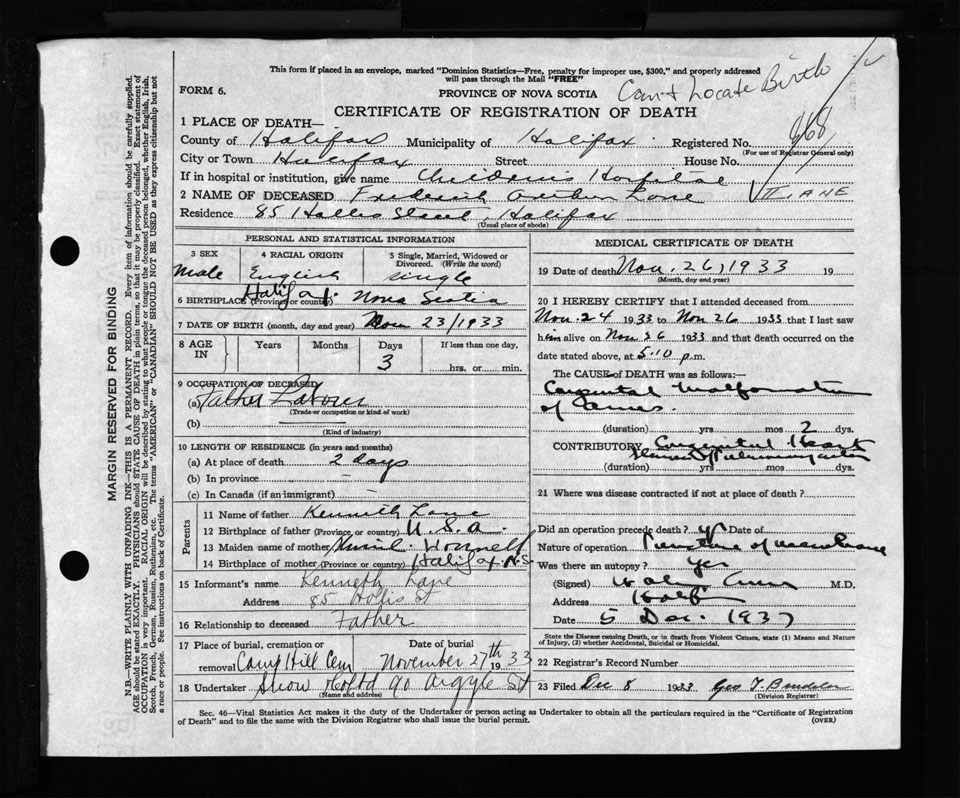 This form if placed in an envelope, marked "Dominion Statistics—Free, penalty for improper use, $300," and properly addressed
will pass through the Mail "FREE"
FORM 6.
PROVINCE OF NOVA SCOTIA
Can't Locate Birth
CERTIFICATE OF REGISTRATION OF DEATH
1 PLACE OF DEATH—
County of Halifax Municipality of Halifax Registered No. 868
(For use of Registrar General only)
City or Town Halifax Street House No.
If in hospital or institution, give name Children's Hospital
2 NAME OF DECEASED Frederick Lane LANE
Residence 85 Hollis Street, Halifax
(Usual place of abode)
PERSONAL AND STATISTICAL INFORMATION
3 SEX 4 RACIAL ORIGIN 5 Single, Married, Widowed or Divorced. (Write the word)
Male English single
6 BIRTHPLACE (Province or country) Halifax Nova Scotia
7 DATE OF BIRTH (month, day and year) Nov 23/1933
8 AGE IN Years Months Days If less than one day,
3 hrs. or min.
9 OCCUPATION OF DECEASED
(a) Father
(Trade or occupation or kind of work)
(b)
(Kind of industry)
10 LENGTH OF RESIDENCE (in years and months)
(a) At place of death 2 days
(b) In province
(c) In Canada (if an immigrant)
Parents
11 Name of father Kenneth Lane
12 Birthplace of father (Province or country) U.S.A.
13 Maiden name of mother
14 Birthplace of mother (Province or country) Halifax N.S.
15 Informant's name Kenneth Lane
Address 85 Hollis St
16 Relationship to deceased Father
17 Place of burial, cremation or removal Camp Hill Cem Date of burial November 27th 1933
18 Undertaker Snow 90 Argyle St
(Name and address)
MEDICAL CERTIFICATE OF DEATH
19 Date of death Nov. 26, 1933 19
(Month, day and year)
20 I HEREBY CERTIFY that I attended deceased from
Nov. 24 1933 to Nov 26 1933 that I last saw
him alive on Nov 26 1933 and that death occurred on the
date stated above, at 5.10 p.m.
The CAUSE of DEATH was as follows:—
Congenital Malformation
of
(duration) yrs mos 2 dys.
CONTRIBUTORY Congenital Heart
(duration) yrs mos dys.
21 Where was disease contracted if not at place of death?
Did an operation precede death? yes Date of
Nature of operation of membrane
Was there an autopsy? Yes
(Signed) M.D.
Address Halifax
Date 5 Dec. 1933
State the Disease causing Death, or in death from Violent Causes, state (1) Means and Nature
of Injury, (2) whether Accidental, Suicidal or Homicidal.
22 Registrar's Record Number
23 Filed Dec 8 1933 Geo
(Division Registrar)
Sec. 46—Vital Statistics Act makes it the duty of the Undertaker or person acting as Undertaker to obtain all the particulars required in the "Certificate of Registration
of Death" and to file the same with the Division Registrar who shall issue the burial permit.
(OVER)
MARGIN RESERVED FOR BINDING
N.B.—WRITE PLAINLY WITH UNFADING INK—THIS IS A PERMANENT RECORD. Every item of information should be carefully supplied.
AGE should be stated EXACTLY. PHYSICIANS should STATE CAUSE OF DEATH in plain terms, so that it may be properly classified. Exact statement of
OCCUPATION is very important. RACIAL ORIGIN will be described by stating to what people or tongue the deceased person belonged, whether English, Irish,
Scotch, French, German, Russian, Ruthenian, etc. The terms "AMERICAN" or "CANADIAN" SHOULD NOT BE USED as they express citizenship but not
a race or people. See instructions on back of Certificate.